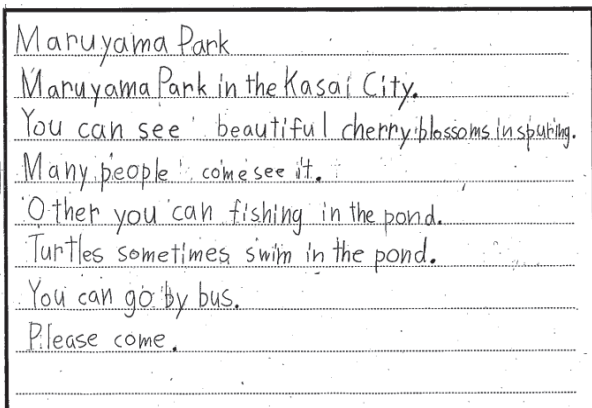 Maruyama Park
Maruyama Park in the Kasai City.
You can see beautiful cherry blossoms in spuring.
Many people come see it.
Other you can fishing in the pond.
Turtles sometimes swim in the pond.
You can go by bus.
Please come.